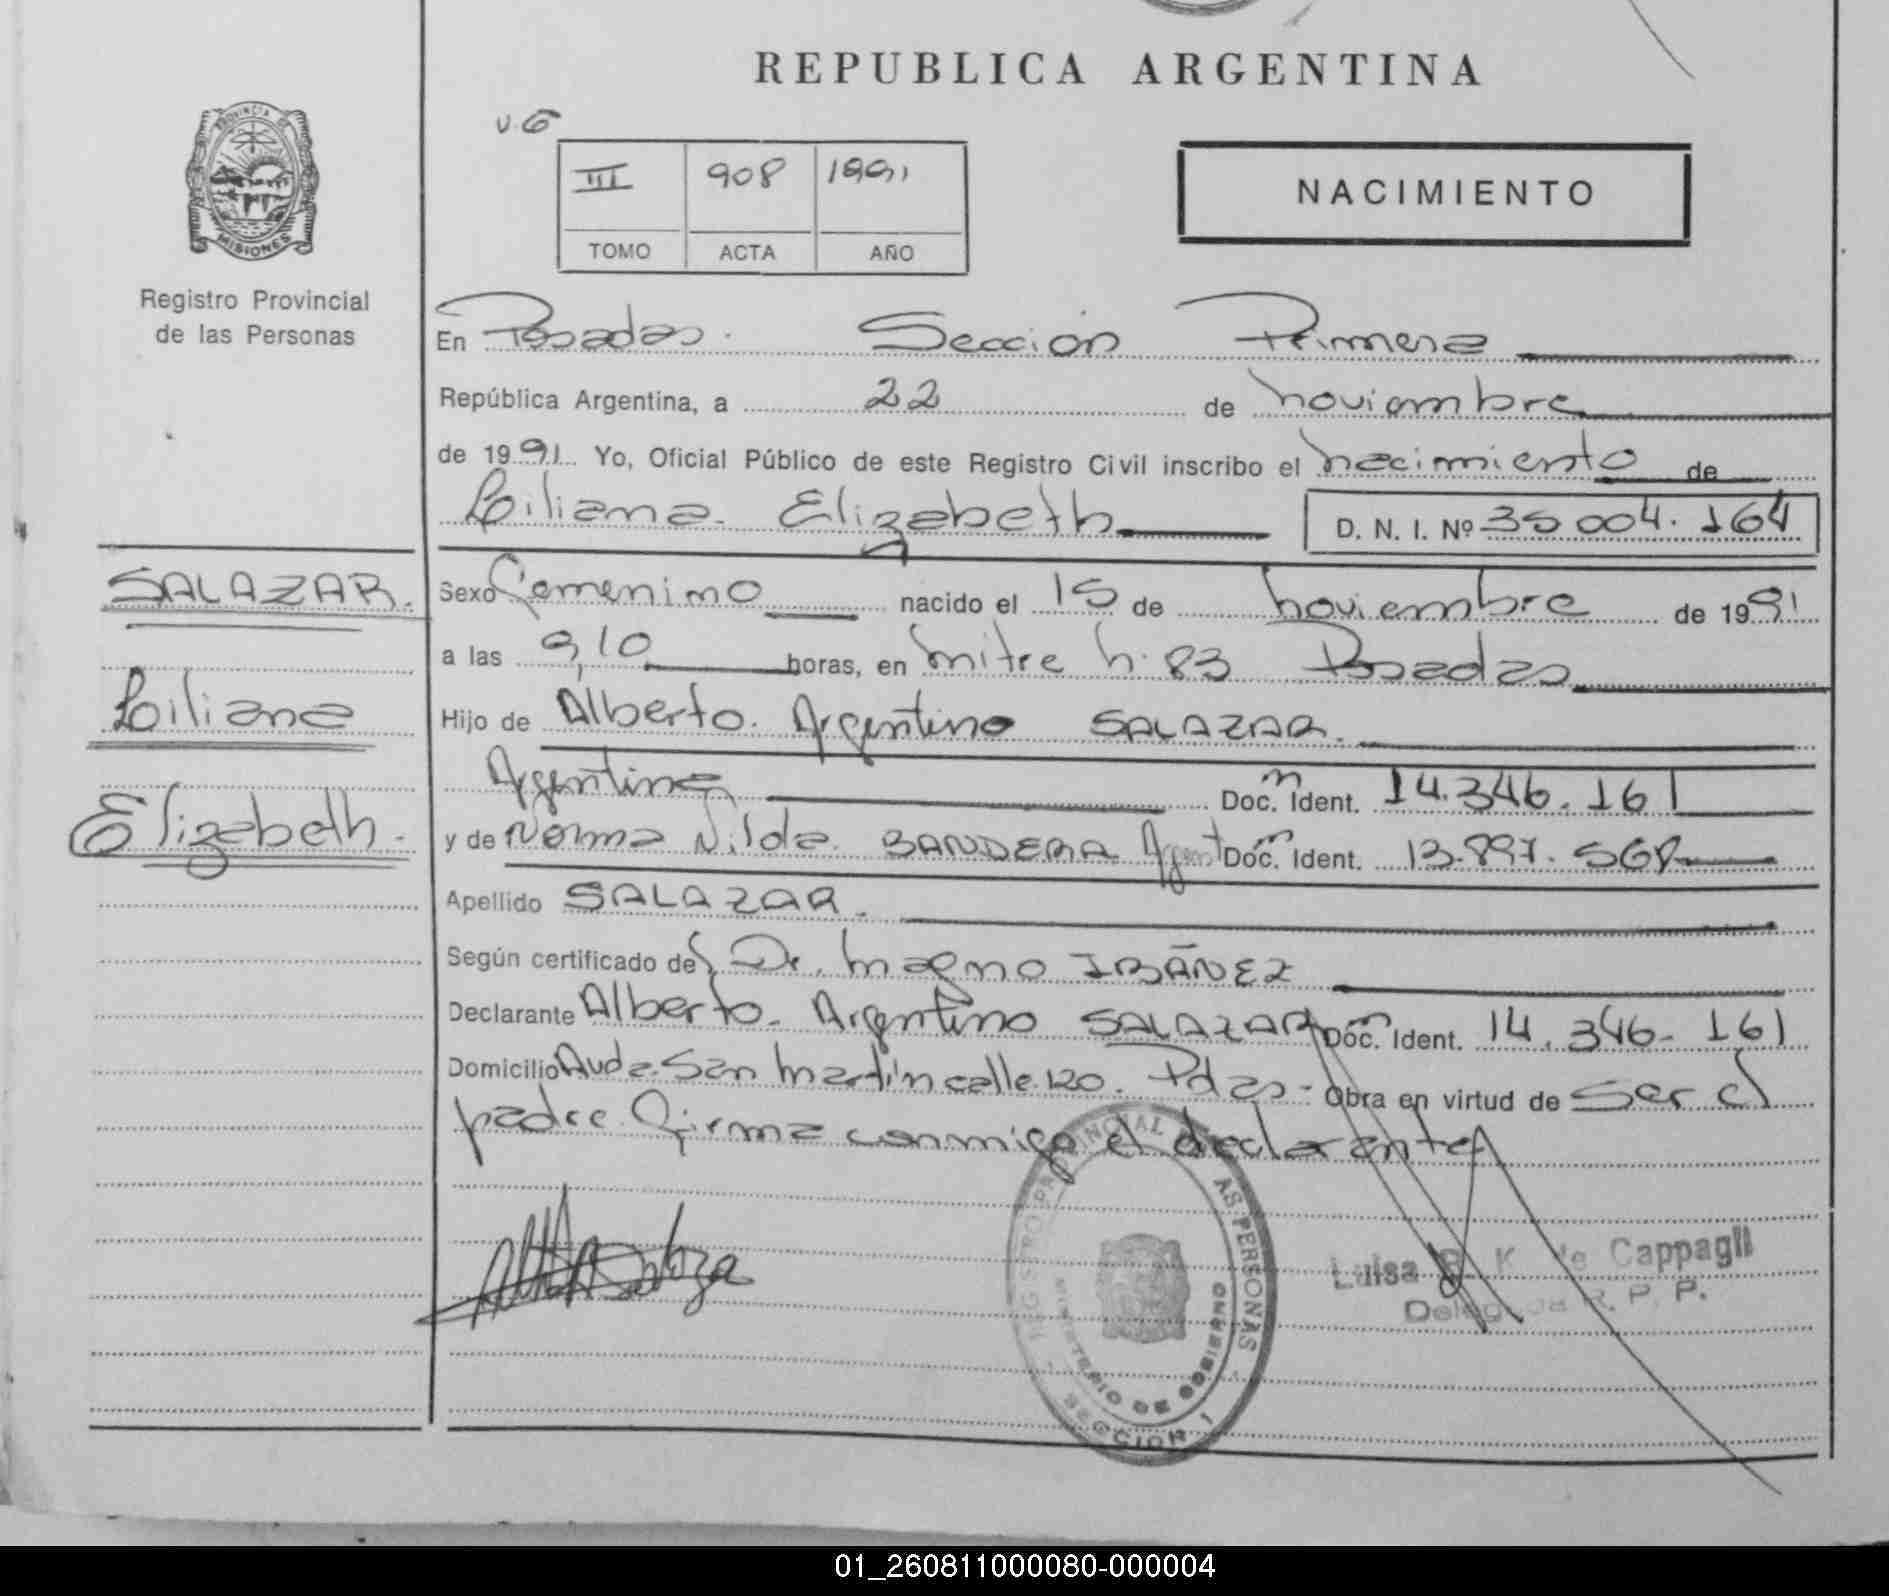 REPUBLICA ARGENTINA
PROVINCIA DE
MISIONES
Registro Provincial
de las Personas
v.6
III 908 1991
TOMO ACTA AÑO
NACIMIENTO
En Posadas. Sección Primera
República Argentina, a 22 de noviembre
de 1991. Yo, Oficial Público de este Registro Civil inscribo el nacimiento de
Liliana Elizabeth D. N. I. Nº 35 004. 164
SALAZAR.
Liliana
Elizabeth.
Sexo femenino nacido el 15 de noviembre de 1991
a las 9,10 horas, en mitre n. 83 Posadas
Hijo de Alberto. Argentino SALAZAR.
Argentina Doc. Ident. 14.346.161
y de Norma Nilda BANDERA Argent Doc. Ident. 13.897.568
Apellido SALAZAR.
Según certificado del Dr. Magno IBAÑEZ
Declarante Alberto. Argentino SALAZAR Doc. Ident. 14.346.161
Domicilio Avda. San Martín calle 120. Pdas- Obra en virtud de Ser el
padre. Firma conmigo el declarante
REGISTRO PROVINCIAL AS PERSONAS
MINISTERIO DE GOBIERNO
SECCION 1
Luisa B. K. de Cappagli
Delegada R. P. P.
01_260811000080-000004